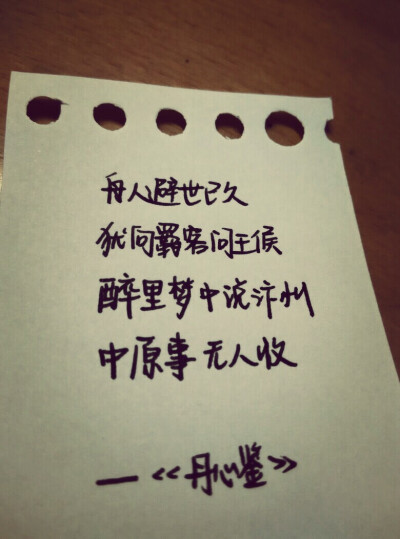 舟人避世已久
犹向羁客问王侯
醉里梦中说汴州
中原事无人收
—《丹心鉴》